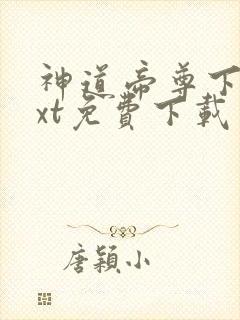 神道帝尊下
xt免費下載
唐穎小